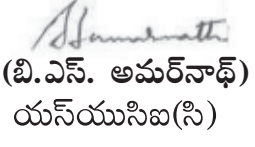 (బి.ఎస్. అమర్‌నాథ్)
యస్‌యుసిఐ(సి)